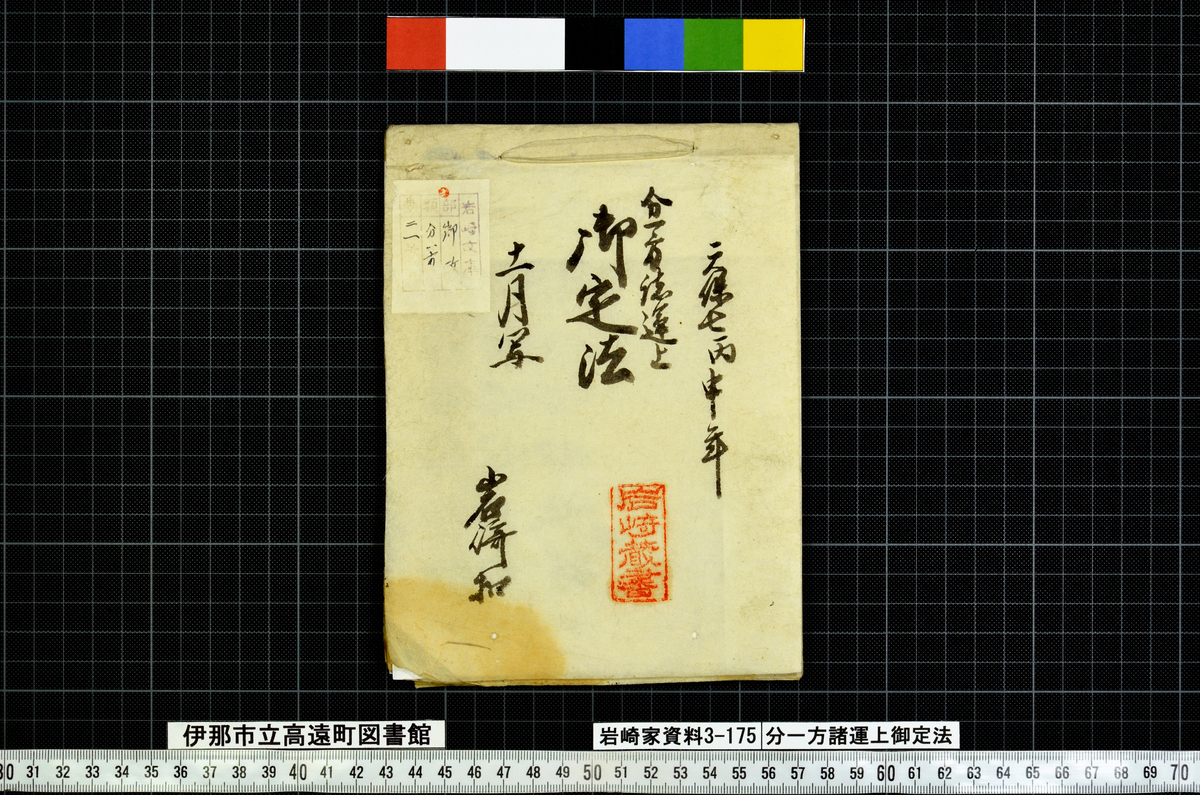 天保七丙申年
分一方諸運上
御定法
十一月写
岩崎扣
岩崎蔵書
岩崎文庫
部 御
類 分一方
二一
伊那市立高遠町図書館
岩崎家資料3-175
分一方諸運上御定法
30 31 32 33 34 35 36 37 38 39 40 41 42 43 44 45 46 47 48 49 50 51 52 53 54 55 56 57 58 59 60 61 62 63 64 65 66 67 68 69 70